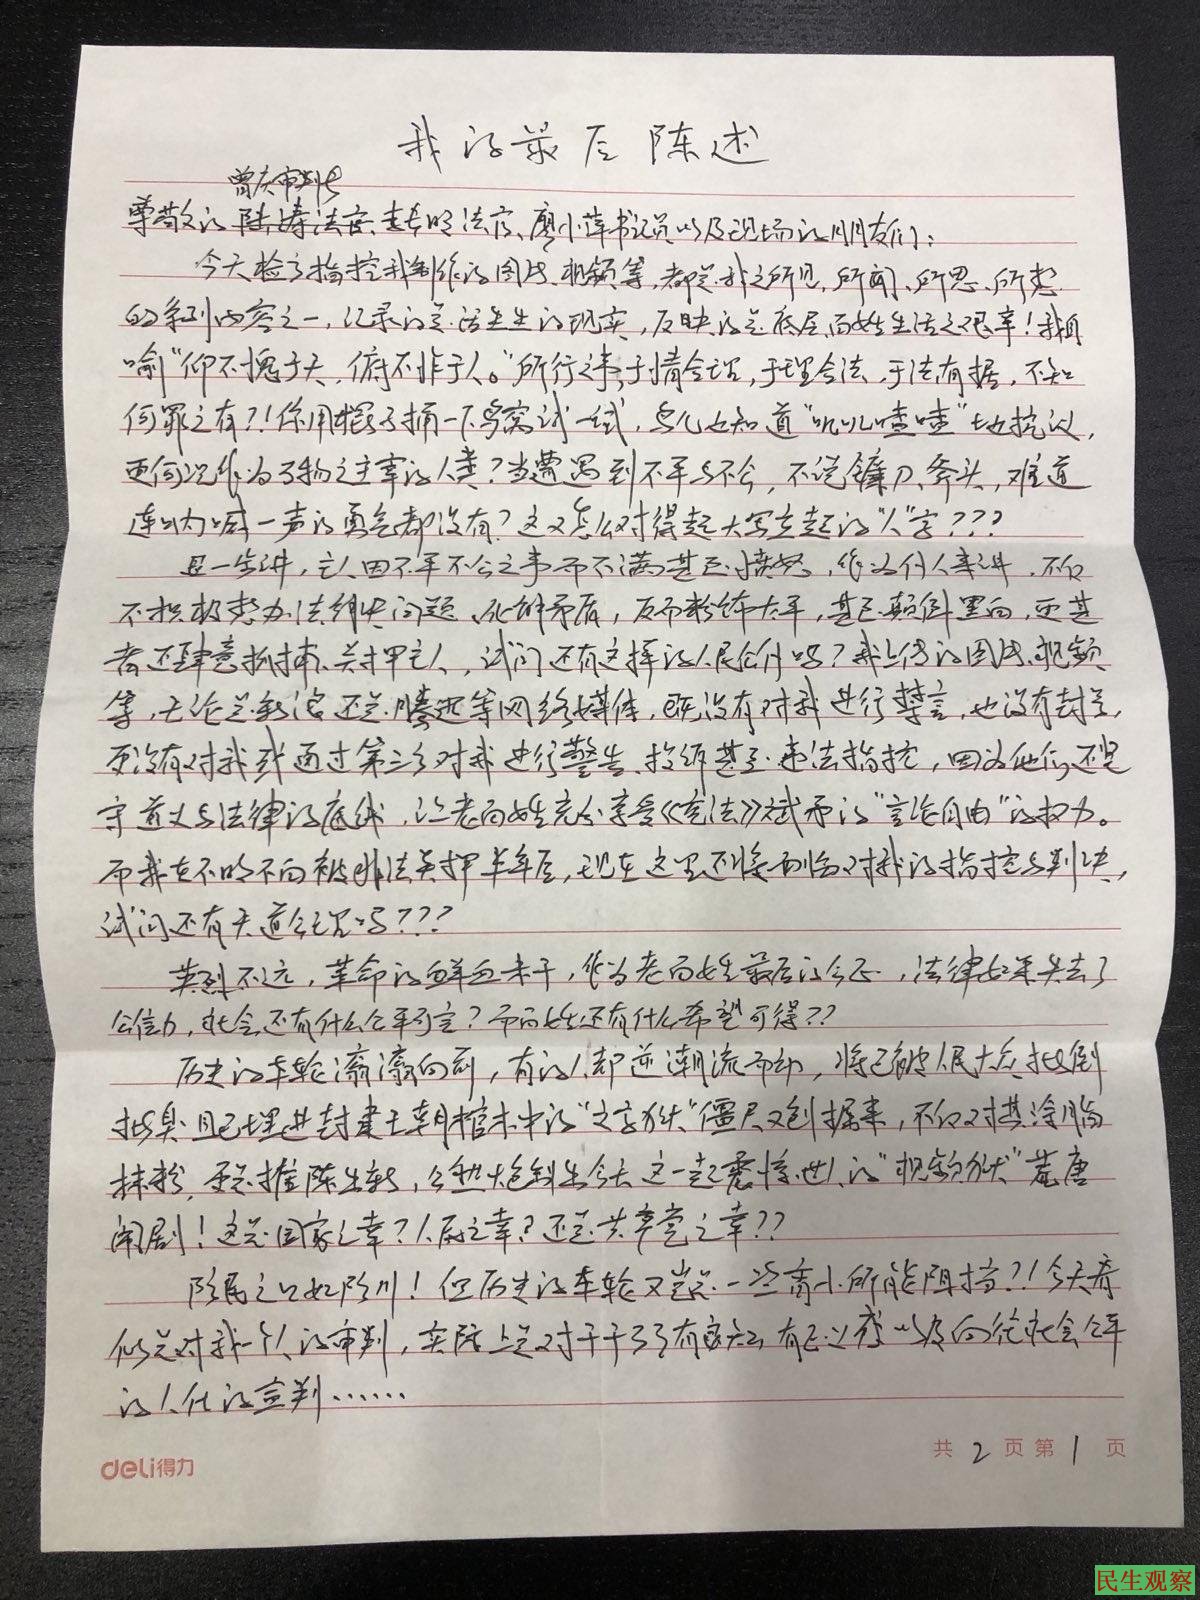 我的最后陈述
曾庆审判长
尊敬的陆涛法官、李长明法官、廖小萍书记员以及现场的朋友们：
今天检方指控我制作的图片、视频等，都是我之所见、所闻、所思、所想
的系列内容之一，记录的是活生生的现实，反映的是底层百姓生活之艰辛！我自
喻“仰不愧于天，俯不怍于人。”所行之事，于情合理，于理合法，于法有据，不知
何罪之有？！你用棍子捅一下鸟窝试一试，鸟儿也知道“叽叽喳喳”地抗议，
更何况作为万物之主宰的人类？当遭遇到不平与不公，不说镰刀、斧头，难道
连呐喊一声的勇气都没有？这又怎么对得起大写立起的“人”字？？？
进一步讲，主人因不平不公之事而不满甚至愤怒，作为仆人来讲，不仅
不积极想办法解决问题、化解矛盾，反而粉饰太平，甚至颠倒黑白，更甚
者还肆意抓捕、关押主人，试问还有这样的人民公仆吗？我上传的图片、视频
等，无论是新浪还是腾迅等网络媒体，既没有对我进行禁言，也没有封号，
更没有对我或通过第三方对我进行警告、投诉甚至违法指控，因为他们还坚
守道义与法律的底线，让老百姓充分享受《宪法》赋予的“言论自由”的权力。
而我在不明不白被非法关押半年后，现在这里还将面临对我的指控与判决，
试问还有天道公理吗？？？
英烈不远，革命的鲜血未干，作为老百姓最后的公正，法律如果失去了
公信力，社会还有什么公平可言？而百姓还有什么希望可得？？
历史的车轮滚滚向前，有的人却逆潮流而动，将已被人民大众批倒
批臭且已埋进封建王朝棺木中的“文字狱”僵尸又刨掘来，不仅对其涂脂
抹粉，更是推陈出新，公然炮制出今天这一起震惊世人的“视频狱”荒唐
闹剧！这是国家之幸？人民之幸？还是共产党之幸？？
防民之口如防川！但历史的车轮又岂是一些宵小所能阻挡？！今天看
似是对我一个人的审判，实际上是对千千万万有良知、有正义感以及向往社会公平
的人仕的宣判……
deli得力
共2页第1页
民生观察